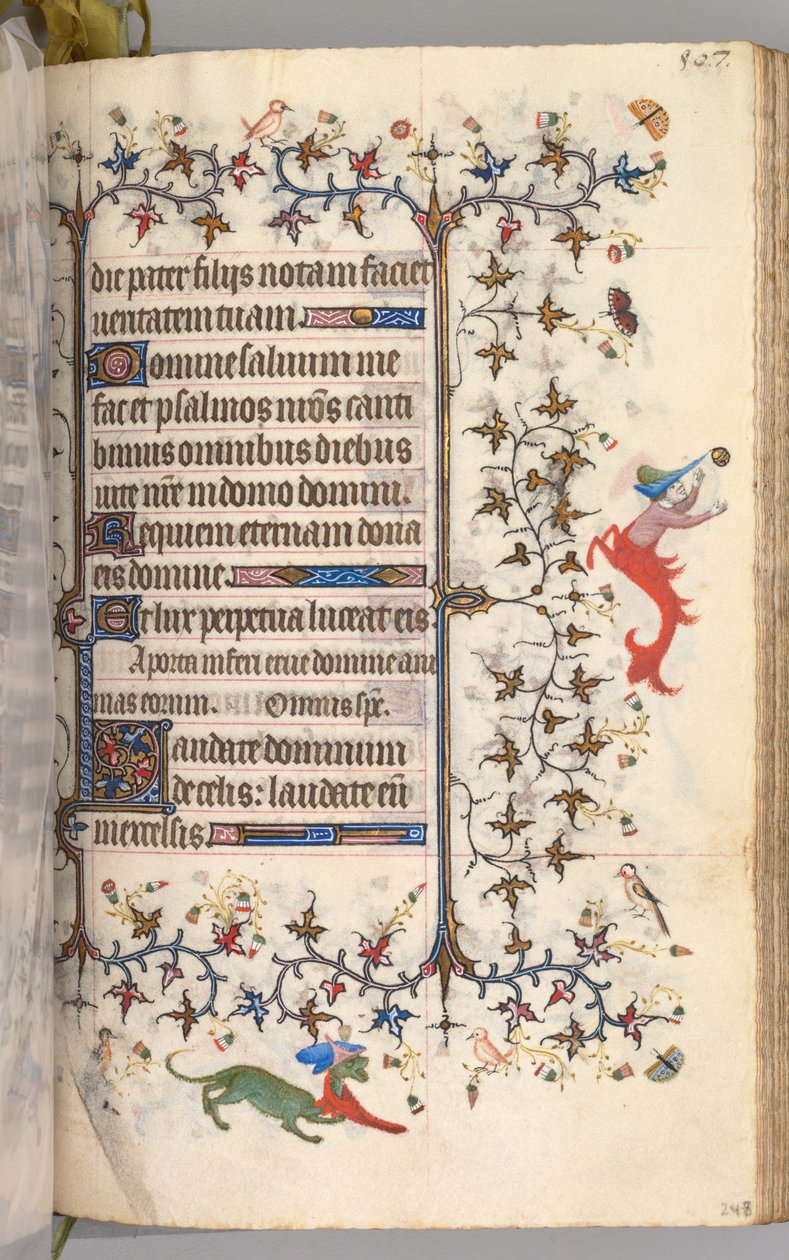 507.
die pater filijs notam faciet
ueritatem tuam.
Domine saluum me
fac et psalmos nr̄os canti
bimus omnibus diebus
uite nr̄e in domo domini.
Requiem eternam dona
eis domine.
Et lux perpetua luceat eis
A porta inferi erue domine ani
mas eorum. Omnis sp̄c.
Laudate dominum
de celis: laudate eū
in excelsis.
248